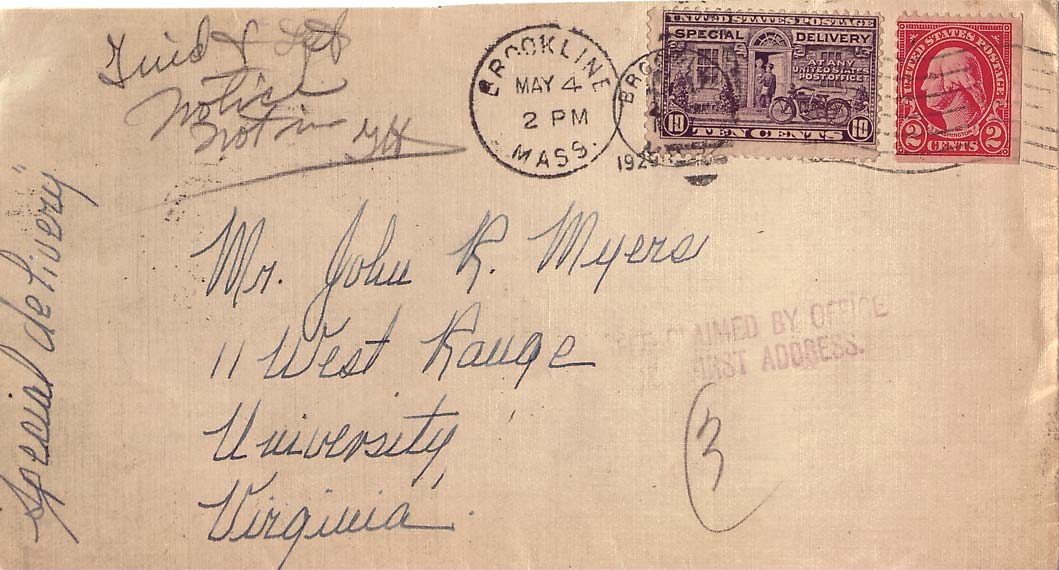 Tried & Left
Notice
Not in
BROOKLINE
MAY 4
2 PM
MASS.
192
UNITED STATES POSTAGE
SPECIAL DELIVERY
AT ANY
UNITED STATES
POST OFFICE
10 TEN CENTS 10
UNITED STATES POSTAGE
WASHINGTON
2 CENTS 2
"Special delivery"
Mr. John R. Myers
11 West Range
University,
Virginia.
FEE CLAIMED BY OFFICE
FIRST ADDRESS.
(3)